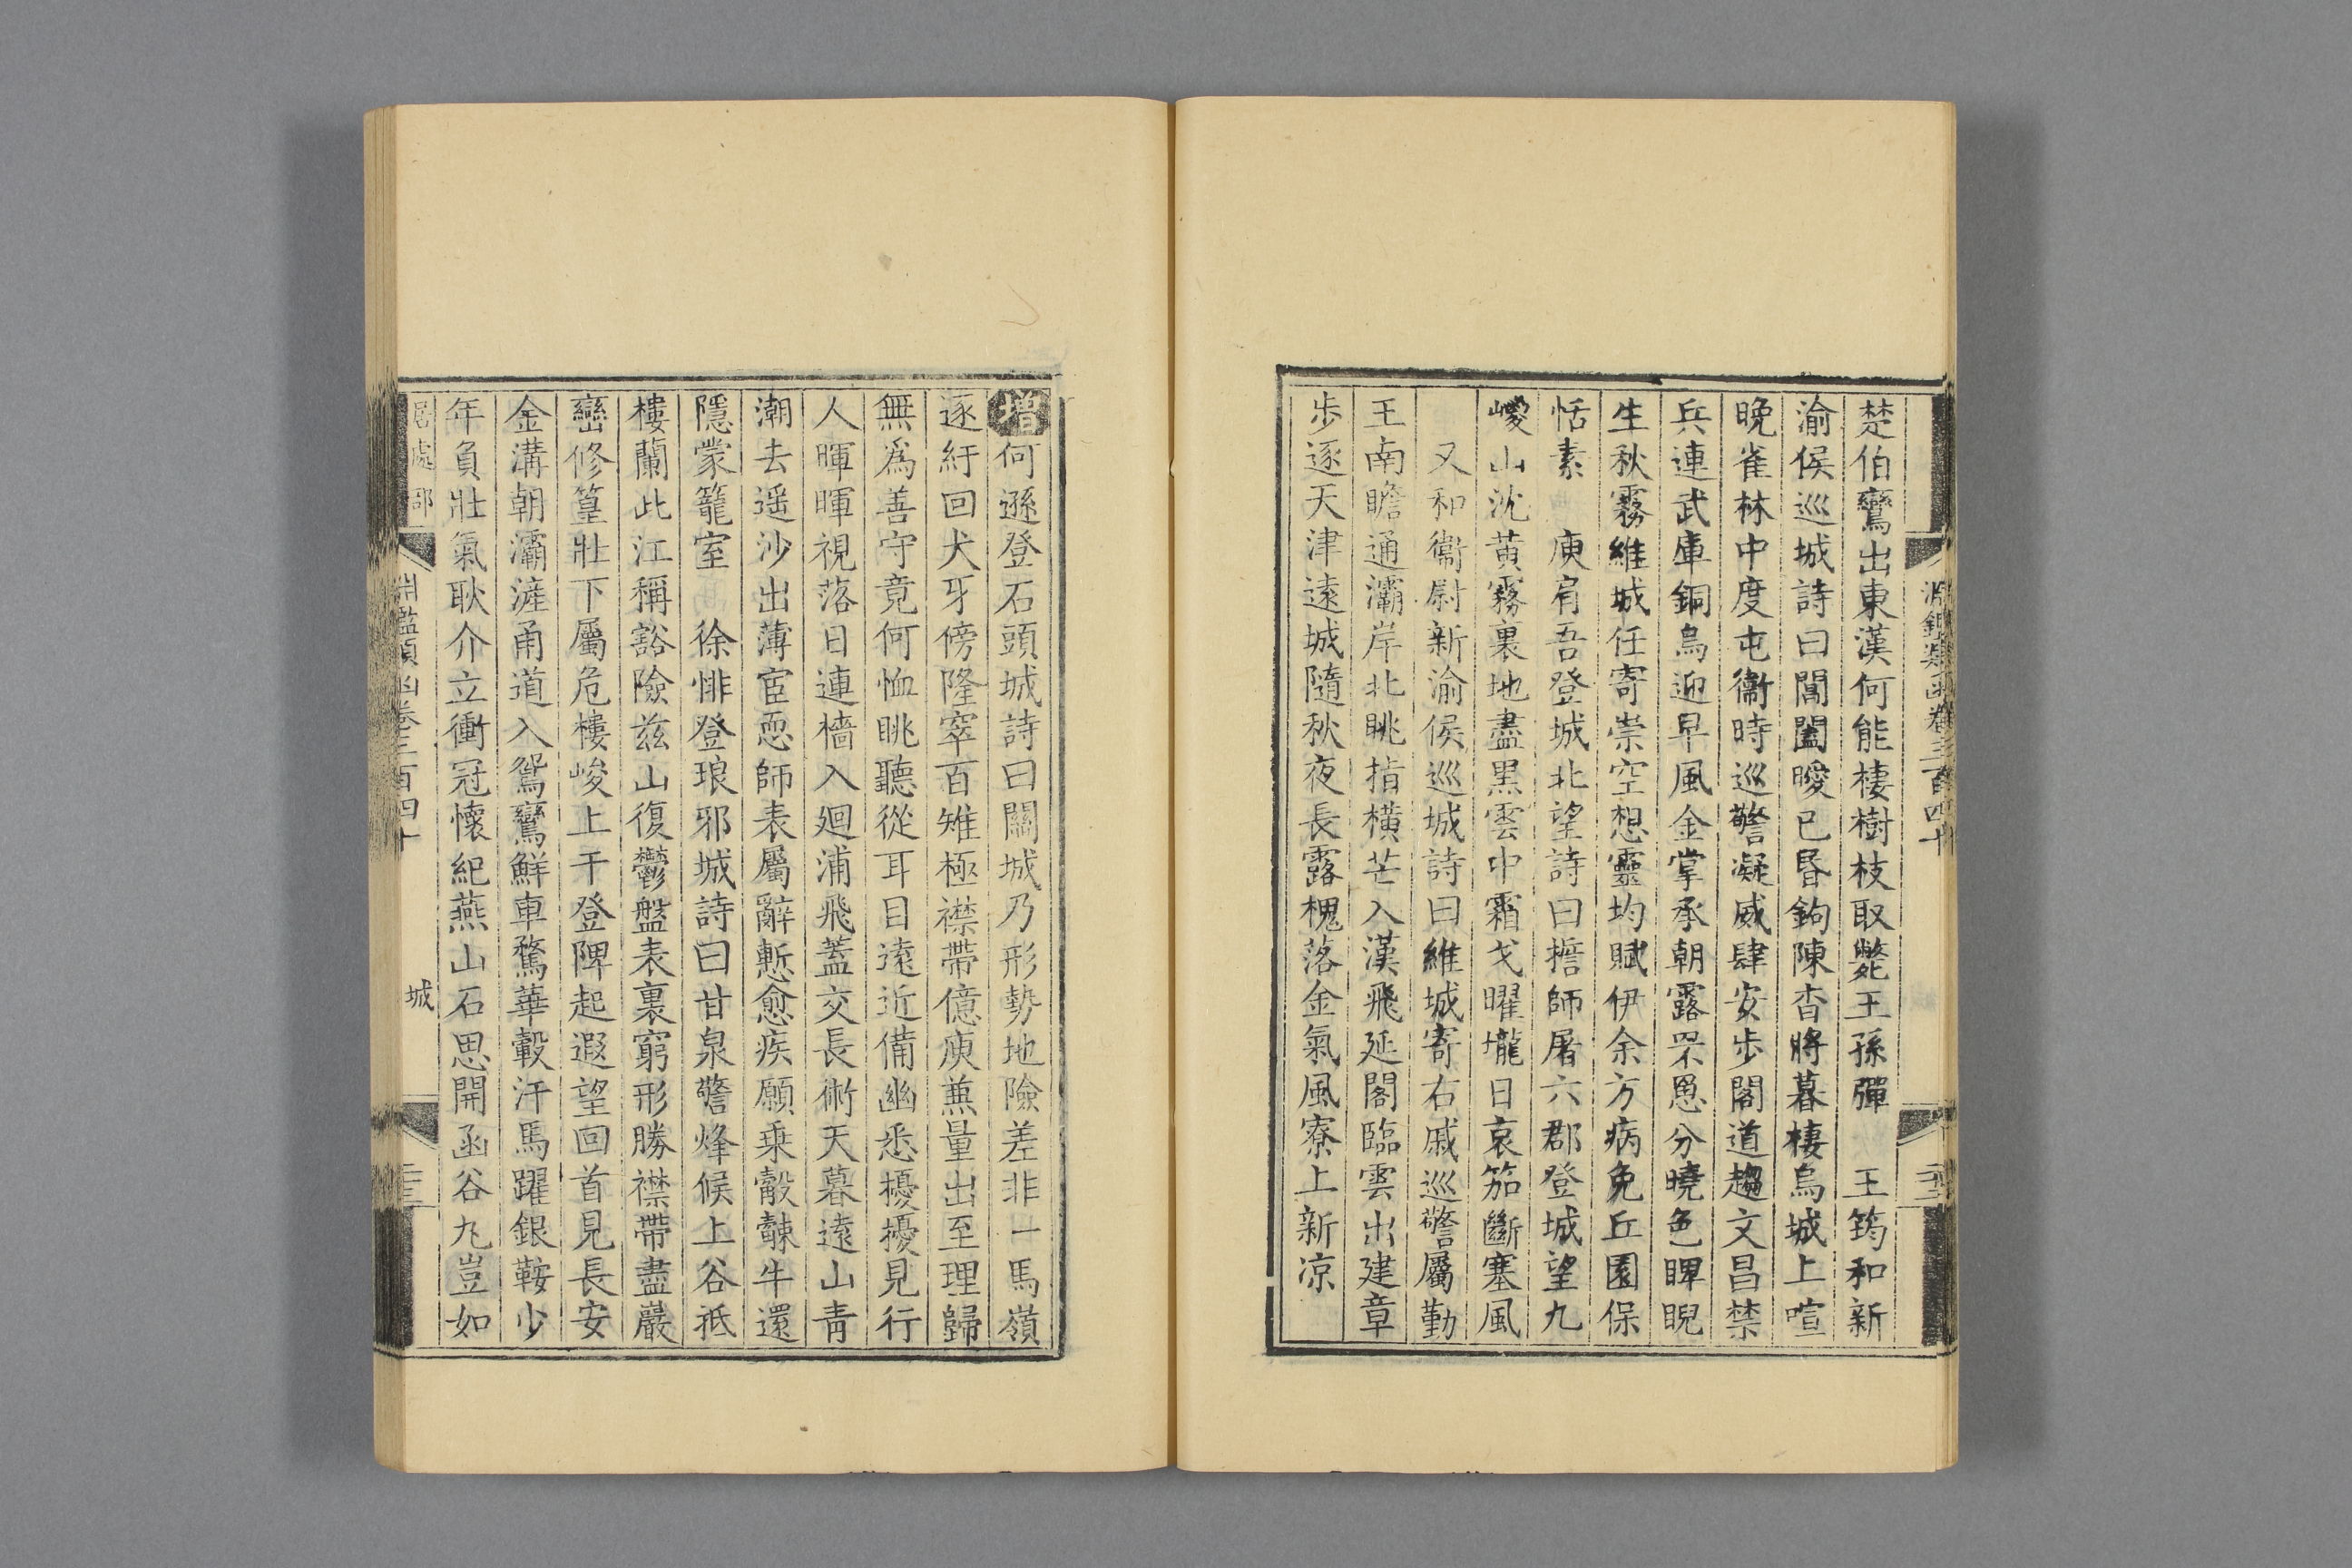 淵鑑類函卷三百四十
楚伯鸞出東漢何能棲樹枝取斃王孫彈　王筠和新
渝侯巡城詩曰閶闔曖已昏鉤陳杳將暮棲烏城上喧
晚雀林中度屯衞時巡警凝威肆安步閣道趨文昌禁
兵連武庫銅烏迎早風金掌承朝露罘罳分曉色睥睨
生秋霧維城任寄崇空想靈均賦伊余方病免丘園保
恬素　庾肩吾登城北望詩曰㨪師屠六郡登城望九
嵕山沈黃霧裏地盡黑雲中霜戈曜壠日哀笳斷塞風
又和衞尉新渝侯巡城詩曰維城寄右戚巡警屬勤
王南瞻通灞岸北眺指橫芒入漢飛延閣臨雲出建章
步逐天津遠城隨秋夜長露槐落金氣風寮上新凉
增何遜登石頭城詩曰關城乃形勢地險差非一馬嶺
逐紆回犬牙傍隆窣百雉極襟帶億庾兼量出至理歸
無爲善守竟何恤眺聽從耳目遠近備幽悉擾擾見行
人暉暉視落日連檣入廻浦飛蓋交長術天暮遠山靑
潮去遥沙出薄宦恧師表屬辭慙愈疾願乗觳觫牛還
隱蒙籠室　徐悱登琅邪城詩曰甘泉警烽候上谷抵
樓蘭此江稱豁險兹山復鬱盤表裏窮形勝襟帶盡巖
巒修篁壯下屬危樓峻上干登陴起遐望回首見長安
金溝朝灞滻甬道入鴛鸞鮮車騖華轂汗馬躍銀鞍少
年負壯氣耿介立衝冠懷紀燕山石思開函谷丸豈如
居處部　淵鑑類函卷三百四十　城　二十三